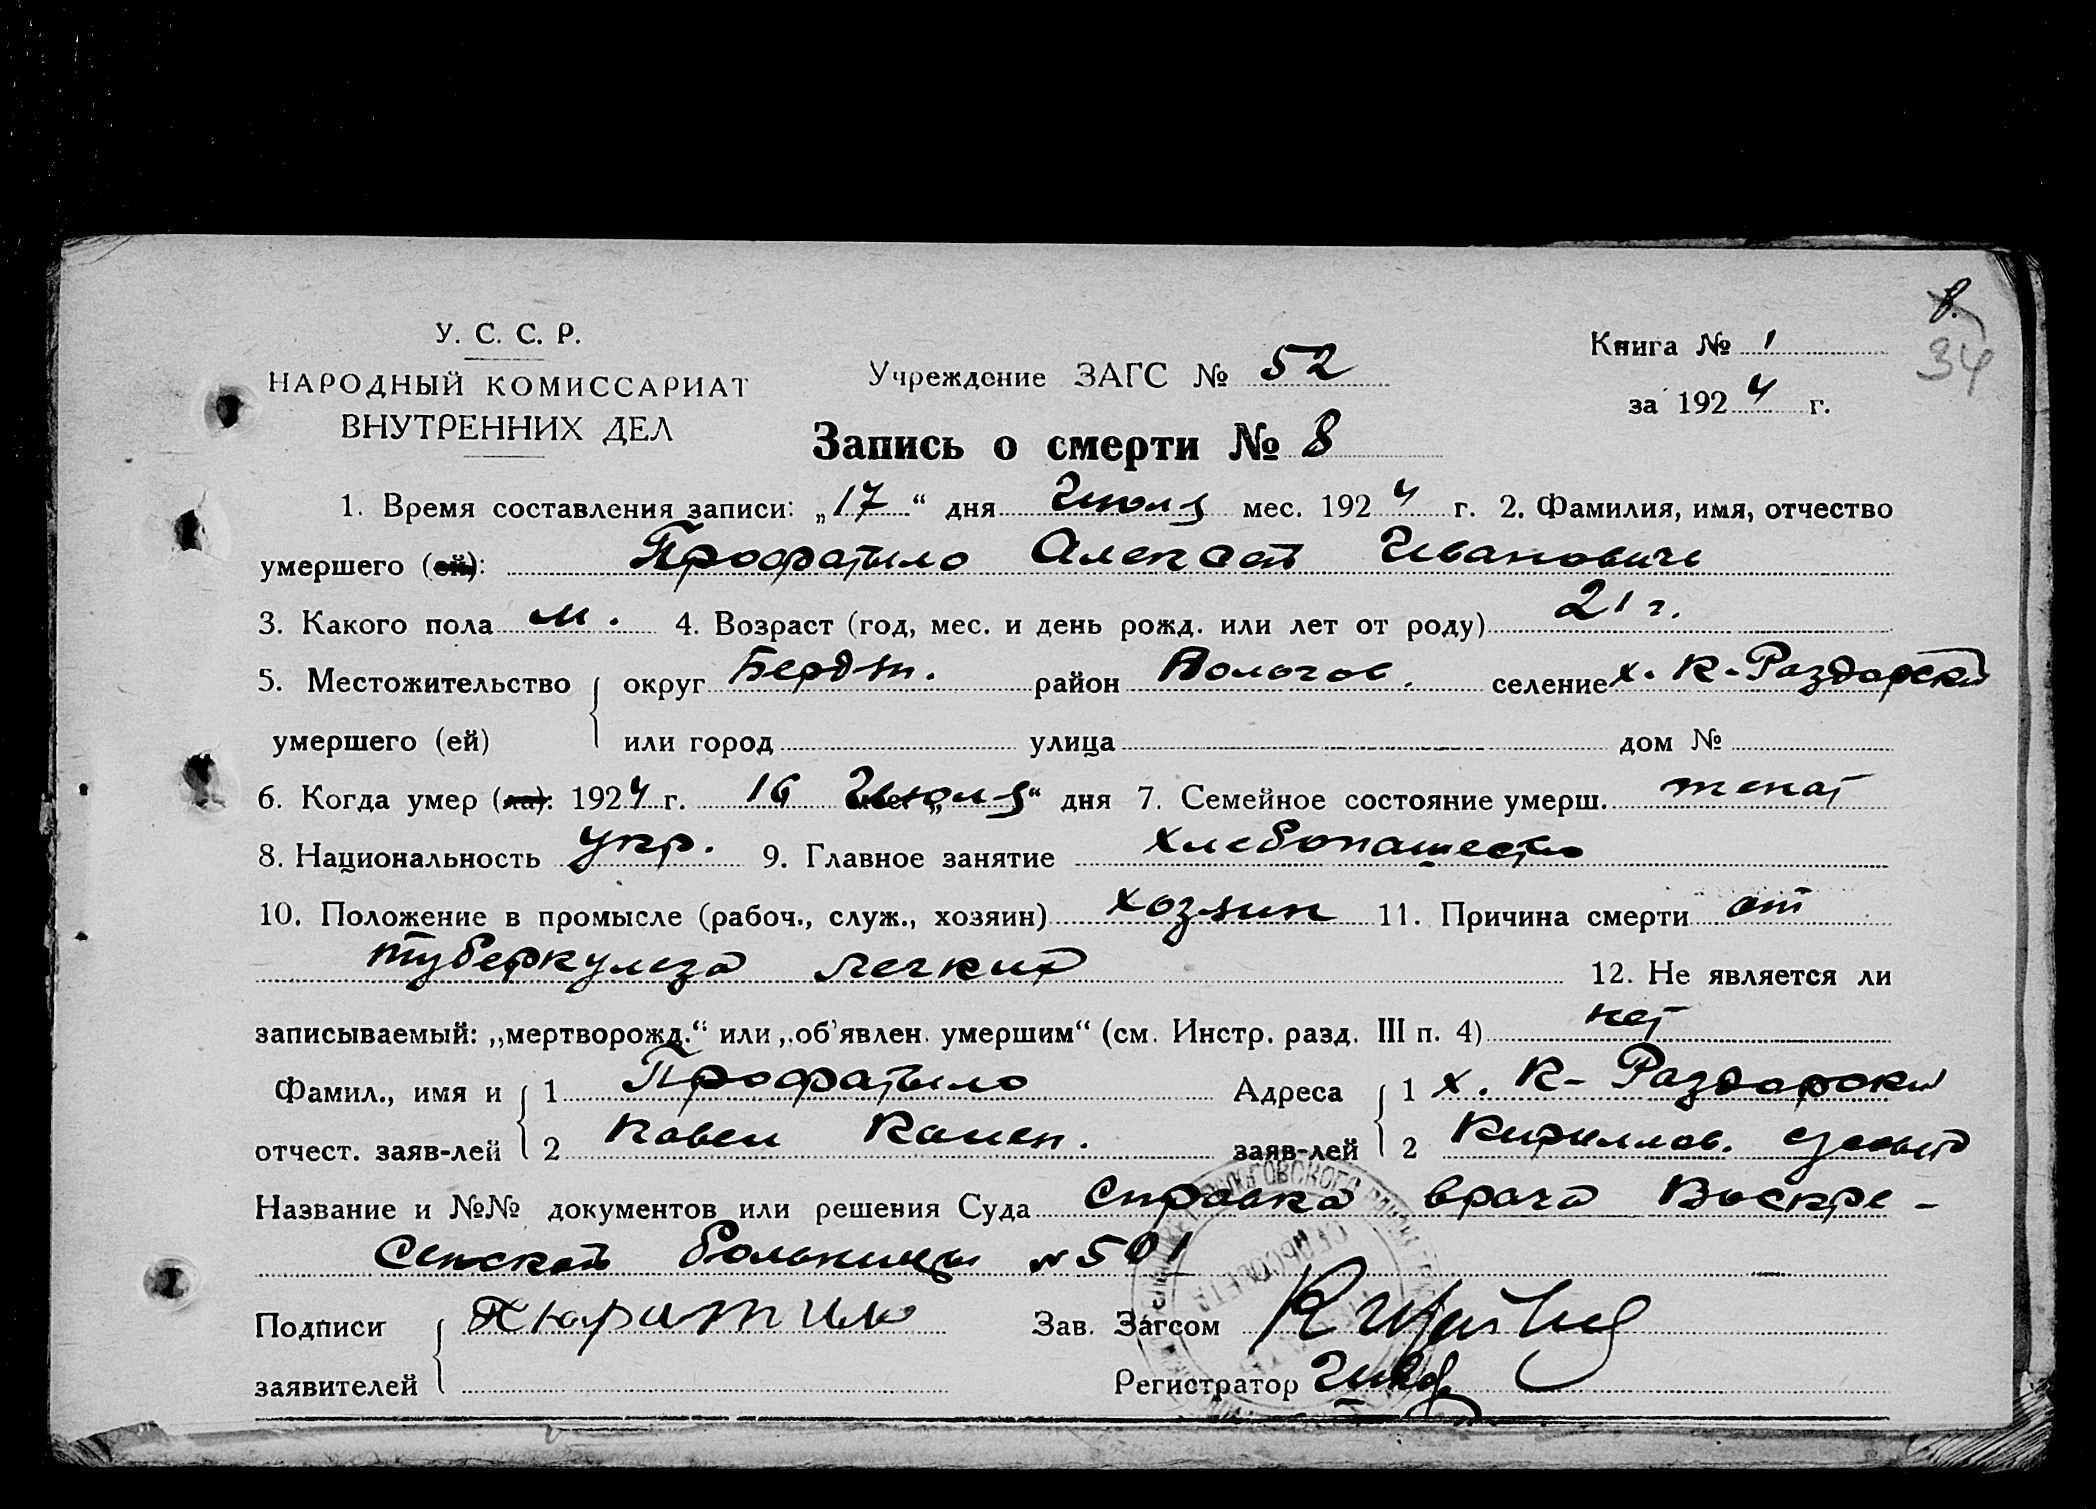 8.
34
У. С. С. Р.
НАРОДНЫЙ КОМИССАРИАТ
ВНУТРЕННИХ ДЕЛ
Учреждение ЗАГС № 52
Книга № 1
за 1924 г.
Запись о смерти № 8
1. Время составления записи: „17“ дня Июля мес. 1924 г. 2. Фамилия, имя, отчество
умершего (ей): Профатыло Алексей Иванович
3. Какого пола м. 4. Возраст (год, мес. и день рожд. или лет от роду) 21 г.
5. Местожительство округ Бердян. район Пологов. селение х. К-Раздорски
умершего (ей) или город улица дом №
6. Когда умер (ла): 1924 г. 16 Июля “ дня 7. Семейное состояние умерш. женат
8. Национальность укр. 9. Главное занятие хлебопашество
10. Положение в промысле (рабоч., служ., хозяин) хозяин 11. Причина смерти от
туберкулеза легких
12. Не является ли
записываемый: „мертворожд.“ или „об'явлен. умершим“ (см. Инстр. разд. III п. 4) нет
Фамил., имя и 1 Профатыло Адреса 1 х. К-Раздорски
отчест. заяв-лей 2 Павел заяв-лей 2 Кириллов.
Название и №№ документов или решения Суда Справка врача Воскре-
сенской больницы № 501
Подписи Зав. Загсом
заявителей Регистратор